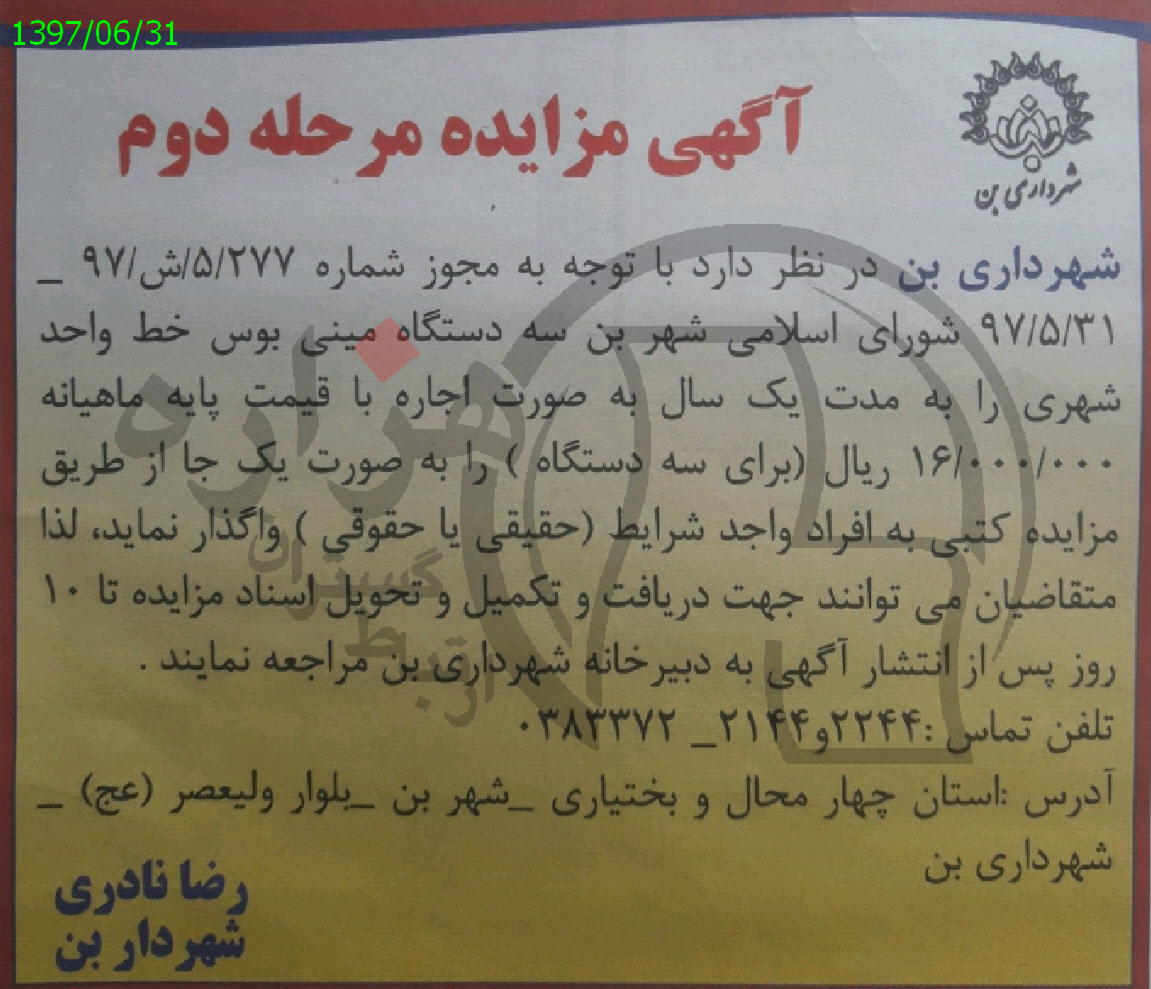 1397/06/31
شهرداری بن
آگهی مزایده مرحله دوم
شهرداری بن در نظر دارد با توجه به مجوز شماره ۵/۲۷۷/ش/۹۷ _
۹۷/۵/۳۱ شورای اسلامی شهر بن سه دستگاه مینی بوس خط واحد
شهری را به مدت یک سال به صورت اجاره با قیمت پایه ماهیانه
۱۶/۰۰۰/۰۰۰ ریال (برای سه دستگاه ) را به صورت یک جا از طریق
مزایده کتبی به افراد واجد شرایط (حقیقی یا حقوقی ) واگذار نماید، لذا
متقاضیان می توانند جهت دریافت و تکمیل و تحویل اسناد مزایده تا ۱۰
روز پس از انتشار آگهی به دبیرخانه شهرداری بن مراجعه نمایند .
تلفن تماس :۲۲۴۴و۲۱۴۴_ ۰۳۸۳۳۷۲
آدرس :استان چهار محال و بختیاری _شهر بن _بلوار ولیعصر (عج) _
شهرداری بن
رضا نادری
شهردار بن
هزاره
گستران
ارتباط